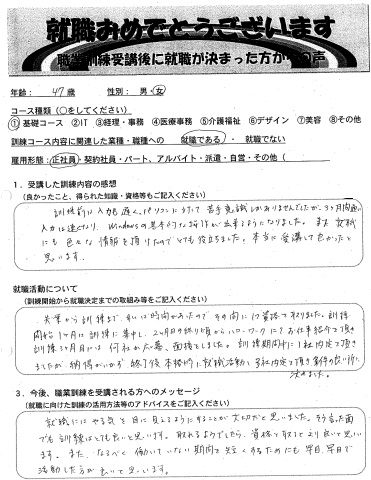 就職おめでとうございます
職業訓練受講後に就職が決まった方からの声
年齢： 47 歳 性別： 男・女
コース種類（○をしてください）
①基礎コース ②IT ③経理・事務 ④医療事務 ⑤介護福祉 ⑥デザイン ⑦美容 ⑧その他
訓練コース内容に関連した業種・職種への 就職である・ 就職でない
雇用形態：正社員・契約社員・パート、アルバイト・派遣・自営・その他（
１．受講した訓練内容の感想
（良かったこと、得られた知識・資格等もご記入ください）
訓練前は入力も遅く、パソコンにうたて苦手意識しかありませんでしたが、3ヶ月間
入力は速くなり、Windowsの基本的な操作が出来るようになりました。また
にも色々な情報を頂けたのでとても役立ちました。本当に受講して良かったと
思います。
就職活動について
（訓練開始から就職決定までの取組み等をご記入ください）
失業から訓練まで、幸いは時間があったので その間に 資格 取りました。訓練
開始1ヶ月は訓練に集中し、2ヶ月目の終り頃からハローワークにてお仕事紹介て頂き
訓練3ヶ月目には 何社か応募、面接をしました。訓練期間中に1社内定て頂き
ましたが、納得がいかず 終了後 本格的に就職活動し 3社内定て頂き条件の良い所に
決めました。
３．今後、職業訓練を受講される方へのメッセージ
（就職に向けた訓練の活用方法等のアドバイスをご記入ください）
就職には やる気を目に見えるようにすることが大切だと思いました。そう言った面
でも訓練はとても良いと思います。取れるようでしたら、資格を取るとより良いと思い
ます。また、なるべく働いていない期間を短くするためにも早目、早目で
活動した方が良いと思います。